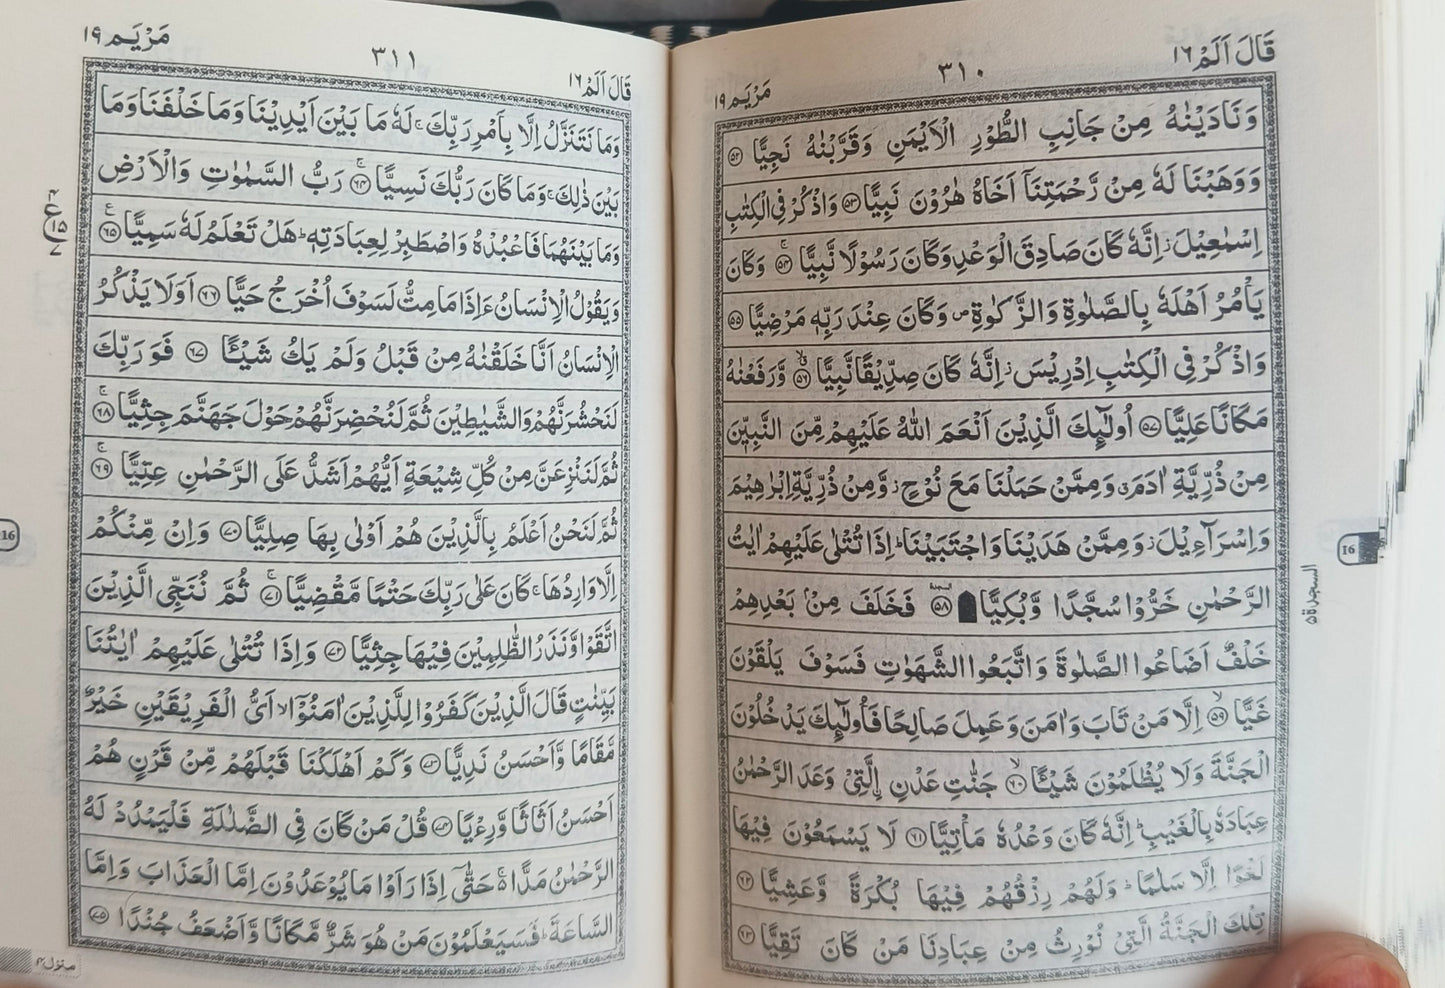 قَالَ اَلَمْ ١٦
٣١٠
مَرْيَم ١٩
وَنَادَيْنٰهُ مِنْ جَانِبِ الطُّوْرِ الْاَيْمَنِ وَقَرَّبْنٰهُ نَجِيًّا ۝٥٢
وَوَهَبْنَا لَهٗ مِنْ رَّحْمَتِنَاۤ اَخَاهُ هٰرُوْنَ نَبِيًّا ۝٥٣ وَاذْكُرْ فِى الْكِتٰبِ
اِسْمٰعِيْلَ ز اِنَّهٗ كَانَ صَادِقَ الْوَعْدِ وَكَانَ رَسُوْلًا نَّبِيًّا ۝٥٤ۚ وَكَانَ
يَاْمُرُ اَهْلَهٗ بِالصَّلٰوةِ وَالزَّكٰوةِ ص وَكَانَ عِنْدَ رَبِّهٖ مَرْضِيًّا ۝٥٥
وَاذْكُرْ فِى الْكِتٰبِ اِدْرِيْسَ ز اِنَّهٗ كَانَ صِدِّيْقًا نَّبِيًّا ۝٥٦ۙ وَّرَفَعْنٰهُ
مَكَانًا عَلِيًّا ۝٥٧ اُولٰٓئِكَ الَّذِيْنَ اَنْعَمَ اللّٰهُ عَلَيْهِمْ مِّنَ النَّبِيّٖنَ
مِنْ ذُرِّيَّةِ اٰدَمَ ق وَمِمَّنْ حَمَلْنَا مَعَ نُوْحٍ ز وَّمِنْ ذُرِّيَّةِ اِبْرٰهِيْمَ
وَاِسْرَآءِيْلَ ز وَمِمَّنْ هَدَيْنَا وَاجْتَبَيْنَا ؕ اِذَا تُتْلٰى عَلَيْهِمْ اٰيٰتُ
الرَّحْمٰنِ خَرُّوْا سُجَّدًا وَّبُكِيًّا ۝٥٨ فَخَلَفَ مِنْۢ بَعْدِهِمْ
خَلْفٌ اَضَاعُوا الصَّلٰوةَ وَاتَّبَعُوا الشَّهَوٰتِ فَسَوْفَ يَلْقَوْنَ
غَيًّا ۝٥٩ۙ اِلَّا مَنْ تَابَ وَاٰمَنَ وَعَمِلَ صَالِحًا فَاُولٰٓئِكَ يَدْخُلُوْنَ
الْجَنَّةَ وَلَا يُظْلَمُوْنَ شَيْـًٔا ۝٦٠ۙ جَنّٰتِ عَدْنِ اِلَّتِىْ وَعَدَ الرَّحْمٰنُ
عِبَادَهٗ بِالْغَيْبِ ؕ اِنَّهٗ كَانَ وَعْدُهٗ مَاْتِيًّا ۝٦١ لَا يَسْمَعُوْنَ فِيْهَا
لَغْوًا اِلَّا سَلٰمًا ؕ وَلَهُمْ رِزْقُهُمْ فِيْهَا بُكْرَةً وَّعَشِيًّا ۝٦٢
تِلْكَ الْجَنَّةُ الَّتِىْ نُوْرِثُ مِنْ عِبَادِنَا مَنْ كَانَ تَقِيًّا ۝٦٣
16
السجدة ٥
قَالَ اَلَمْ ١٦
٣١١
مَرْيَم ١٩
وَمَا نَتَنَزَّلُ اِلَّا بِاَمْرِ رَبِّكَ ۚ لَهٗ مَا بَيْنَ اَيْدِيْنَا وَمَا خَلْفَنَا وَمَا
بَيْنَ ذٰلِكَ ۚ وَمَا كَانَ رَبُّكَ نَسِيًّا ۝٦٤ۚ رَبُّ السَّمٰوٰتِ وَالْاَرْضِ
وَمَا بَيْنَهُمَا فَاعْبُدْهُ وَاصْطَبِرْ لِعِبَادَتِهٖ ؕ هَلْ تَعْلَمُ لَهٗ سَمِيًّا ۝٦٥ع
وَيَقُوْلُ الْاِنْسَانُ ءَاِذَا مَا مِتُّ لَسَوْفَ اُخْرَجُ حَيًّا ۝٦٦ اَوَلَا يَذْكُرُ
الْاِنْسَانُ اَنَّا خَلَقْنٰهُ مِنْ قَبْلُ وَلَمْ يَكُ شَيْـًٔا ۝٦٧ فَوَرَبِّكَ
لَنَحْشُرَنَّهُمْ وَالشَّيٰطِيْنَ ثُمَّ لَنُحْضِرَنَّهُمْ حَوْلَ جَهَنَّمَ جِثِيًّا ۝٦٨ۚ
ثُمَّ لَنَنْزِعَنَّ مِنْ كُلِّ شِيْعَةٍ اَيُّهُمْ اَشَدُّ عَلَى الرَّحْمٰنِ عِتِيًّا ۝٦٩ۚ
ثُمَّ لَنَحْنُ اَعْلَمُ بِالَّذِيْنَ هُمْ اَوْلٰى بِهَا صِلِيًّا ۝٧٠ وَاِنْ مِّنْكُمْ
اِلَّا وَارِدُهَا ۚ كَانَ عَلٰى رَبِّكَ حَتْمًا مَّقْضِيًّا ۝٧١ۚ ثُمَّ نُنَجِّى الَّذِيْنَ
اتَّقَوْا وَّنَذَرُ الظّٰلِمِيْنَ فِيْهَا جِثِيًّا ۝٧٢ وَاِذَا تُتْلٰى عَلَيْهِمْ اٰيٰتُنَا
بَيِّنٰتٍ قَالَ الَّذِيْنَ كَفَرُوْا لِلَّذِيْنَ اٰمَنُوْۤا ۙ اَىُّ الْفَرِيْقَيْنِ خَيْرٌ
مَّقَامًا وَّاَحْسَنُ نَدِيًّا ۝٧٣ وَكَمْ اَهْلَكْنَا قَبْلَهُمْ مِّنْ قَرْنٍ هُمْ
اَحْسَنُ اَثَاثًا وَّرِءْيًا ۝٧٤ قُلْ مَنْ كَانَ فِى الضَّلٰلَةِ فَلْيَمْدُدْ لَهُ
الرَّحْمٰنُ مَدًّا ۚ حَتّٰٓى اِذَا رَاَوْا مَا يُوْعَدُوْنَ اِمَّا الْعَذَابَ وَاِمَّا
السَّاعَةَ ؕ فَسَيَعْلَمُوْنَ مَنْ هُوَ شَرٌّ مَّكَانًا وَّاَضْعَفُ جُنْدًا ۝٧٥
٤
ع ١٥
٧
16
منزل ٤